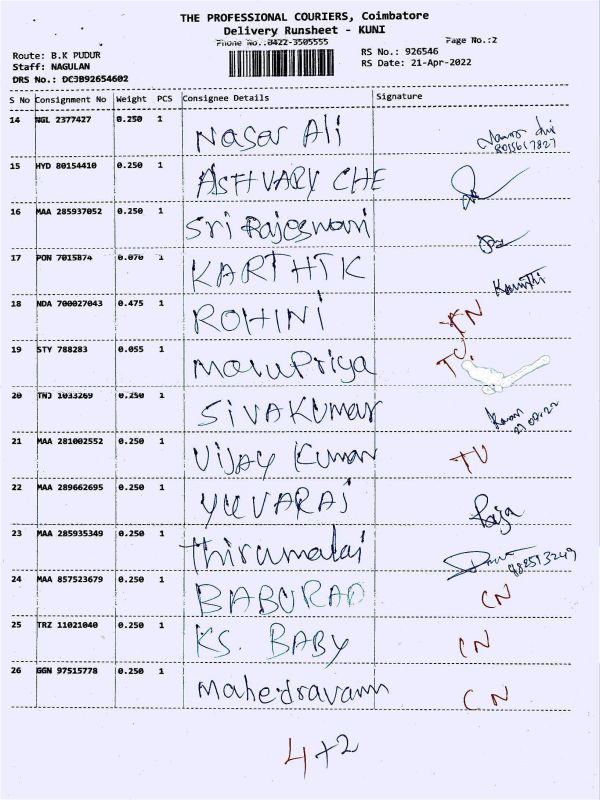 THE PROFESSIONAL COURIERS, Coimbatore
Delivery Runsheet - KUNI
Phone No.:0422-3505555 Page No.:2
Route: B.K PUDUR RS No.: 926546
Staff: NAGULAN RS Date: 21-Apr-2022
DRS No.: DC3B92654602
S No Consignment No Weight PCS Consignee Details Signature
14 NGL 2377427 0.250 1 Nasar Ali
15 HYD 80154410 0.250 1 ASHVARY CHE
16 MAA 285937052 0.250 1 Sri Rajeswari
17 PON 7015874 0.070 1 KARTHIK
18 NDA 700027043 0.475 1 ROHINI
19 STY 788283 0.055 1 MaruPriya
20 TNJ 1033269 0.250 1 SIVAKUMAR
21 MAA 281002552 0.250 1 VIJAY KUMAR TU
22 MAA 289662695 0.250 1 YUVARAJ Raja
23 MAA 285935349 0.250 1 Thirumalai
24 MAA 857523679 0.250 1 BABURAO CN
25 TRZ 11021040 0.250 1 KS. BABY CN
26 GGN 97515778 0.250 1 Mahedravarm CN
4+2